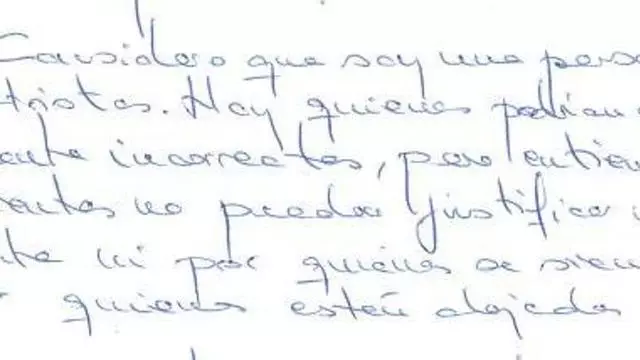 Considero que soy una perso
tristas. Hay quienes podrían
ente incorrectas, pero entien
entas no puedas justificar
te ni por quienes se sien
quienes estén alejados